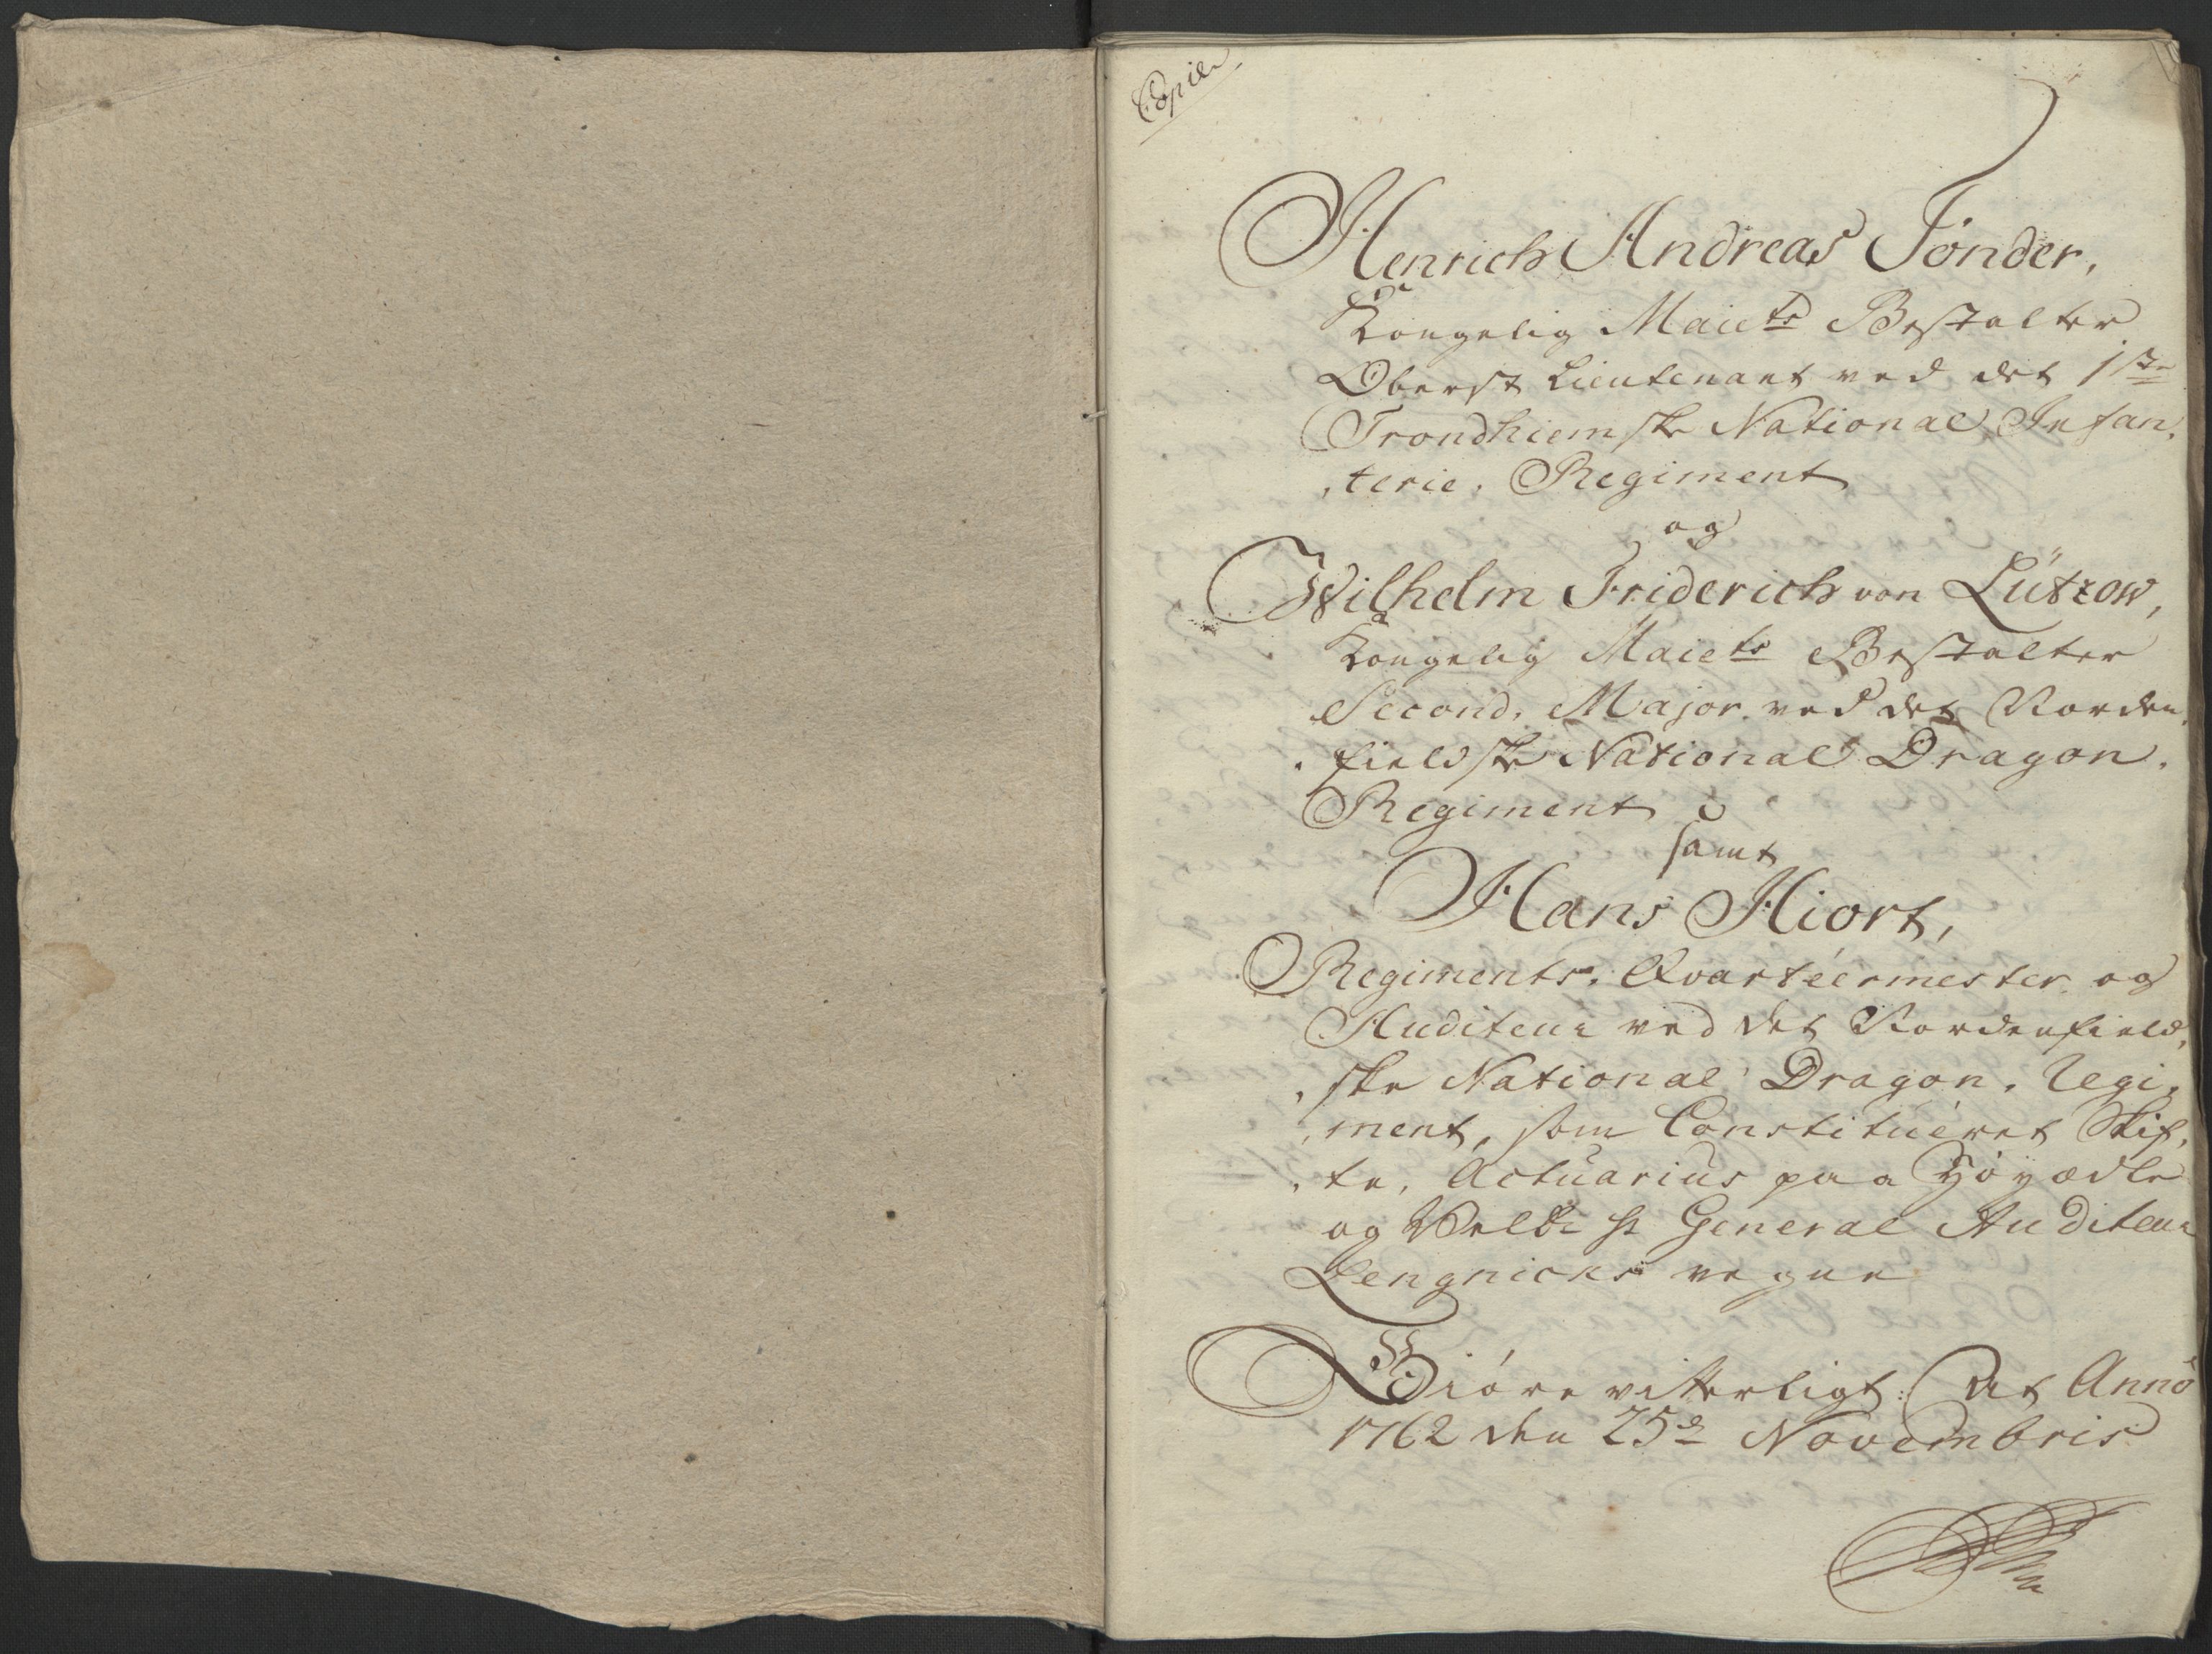 Copie
Henrich Andreas Tønder,
Kongelig Maiets Bestalter
Oberst Lieutenant ved det 1ste
Trondhiemske National Infan-
-terie- Regiment
og
Wilhelm Friderich von Lützow,
Kongelig Maiets Bestalter
Second- Major ved det Norden-
-fieldske National Dragon-
Regiment
samt
Hans Hiort,
Regiments- Qvarteermester og
Auditeur ved det Nordenfield-
-ske National Dragon- Regi-
-ment, som Constitueret Skif-
-te- Actuarius paa Høyædle
og Velb: Hr General Auditeur
Lengnicks vegne
Giøre vitterligt: At Anno
1762 den 25de Novembris